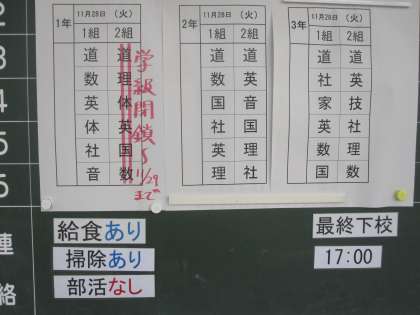 1年 11月28日 (火)
1組 2組
道 道
数 理
英 体
体 英
社 国
音 数
学級閉鎖
〜11/29
まで
2年 11月28日 (火)
1組 2組
道 道
数 英
国 音
社 国
英 理
理 社
3年 11月28日 (火)
1組 2組
道 道
社 英
家 技
英 社
数 理
国 数
3
4
5
連
絡
給食あり
掃除あり
部活なし
最終下校
17:00